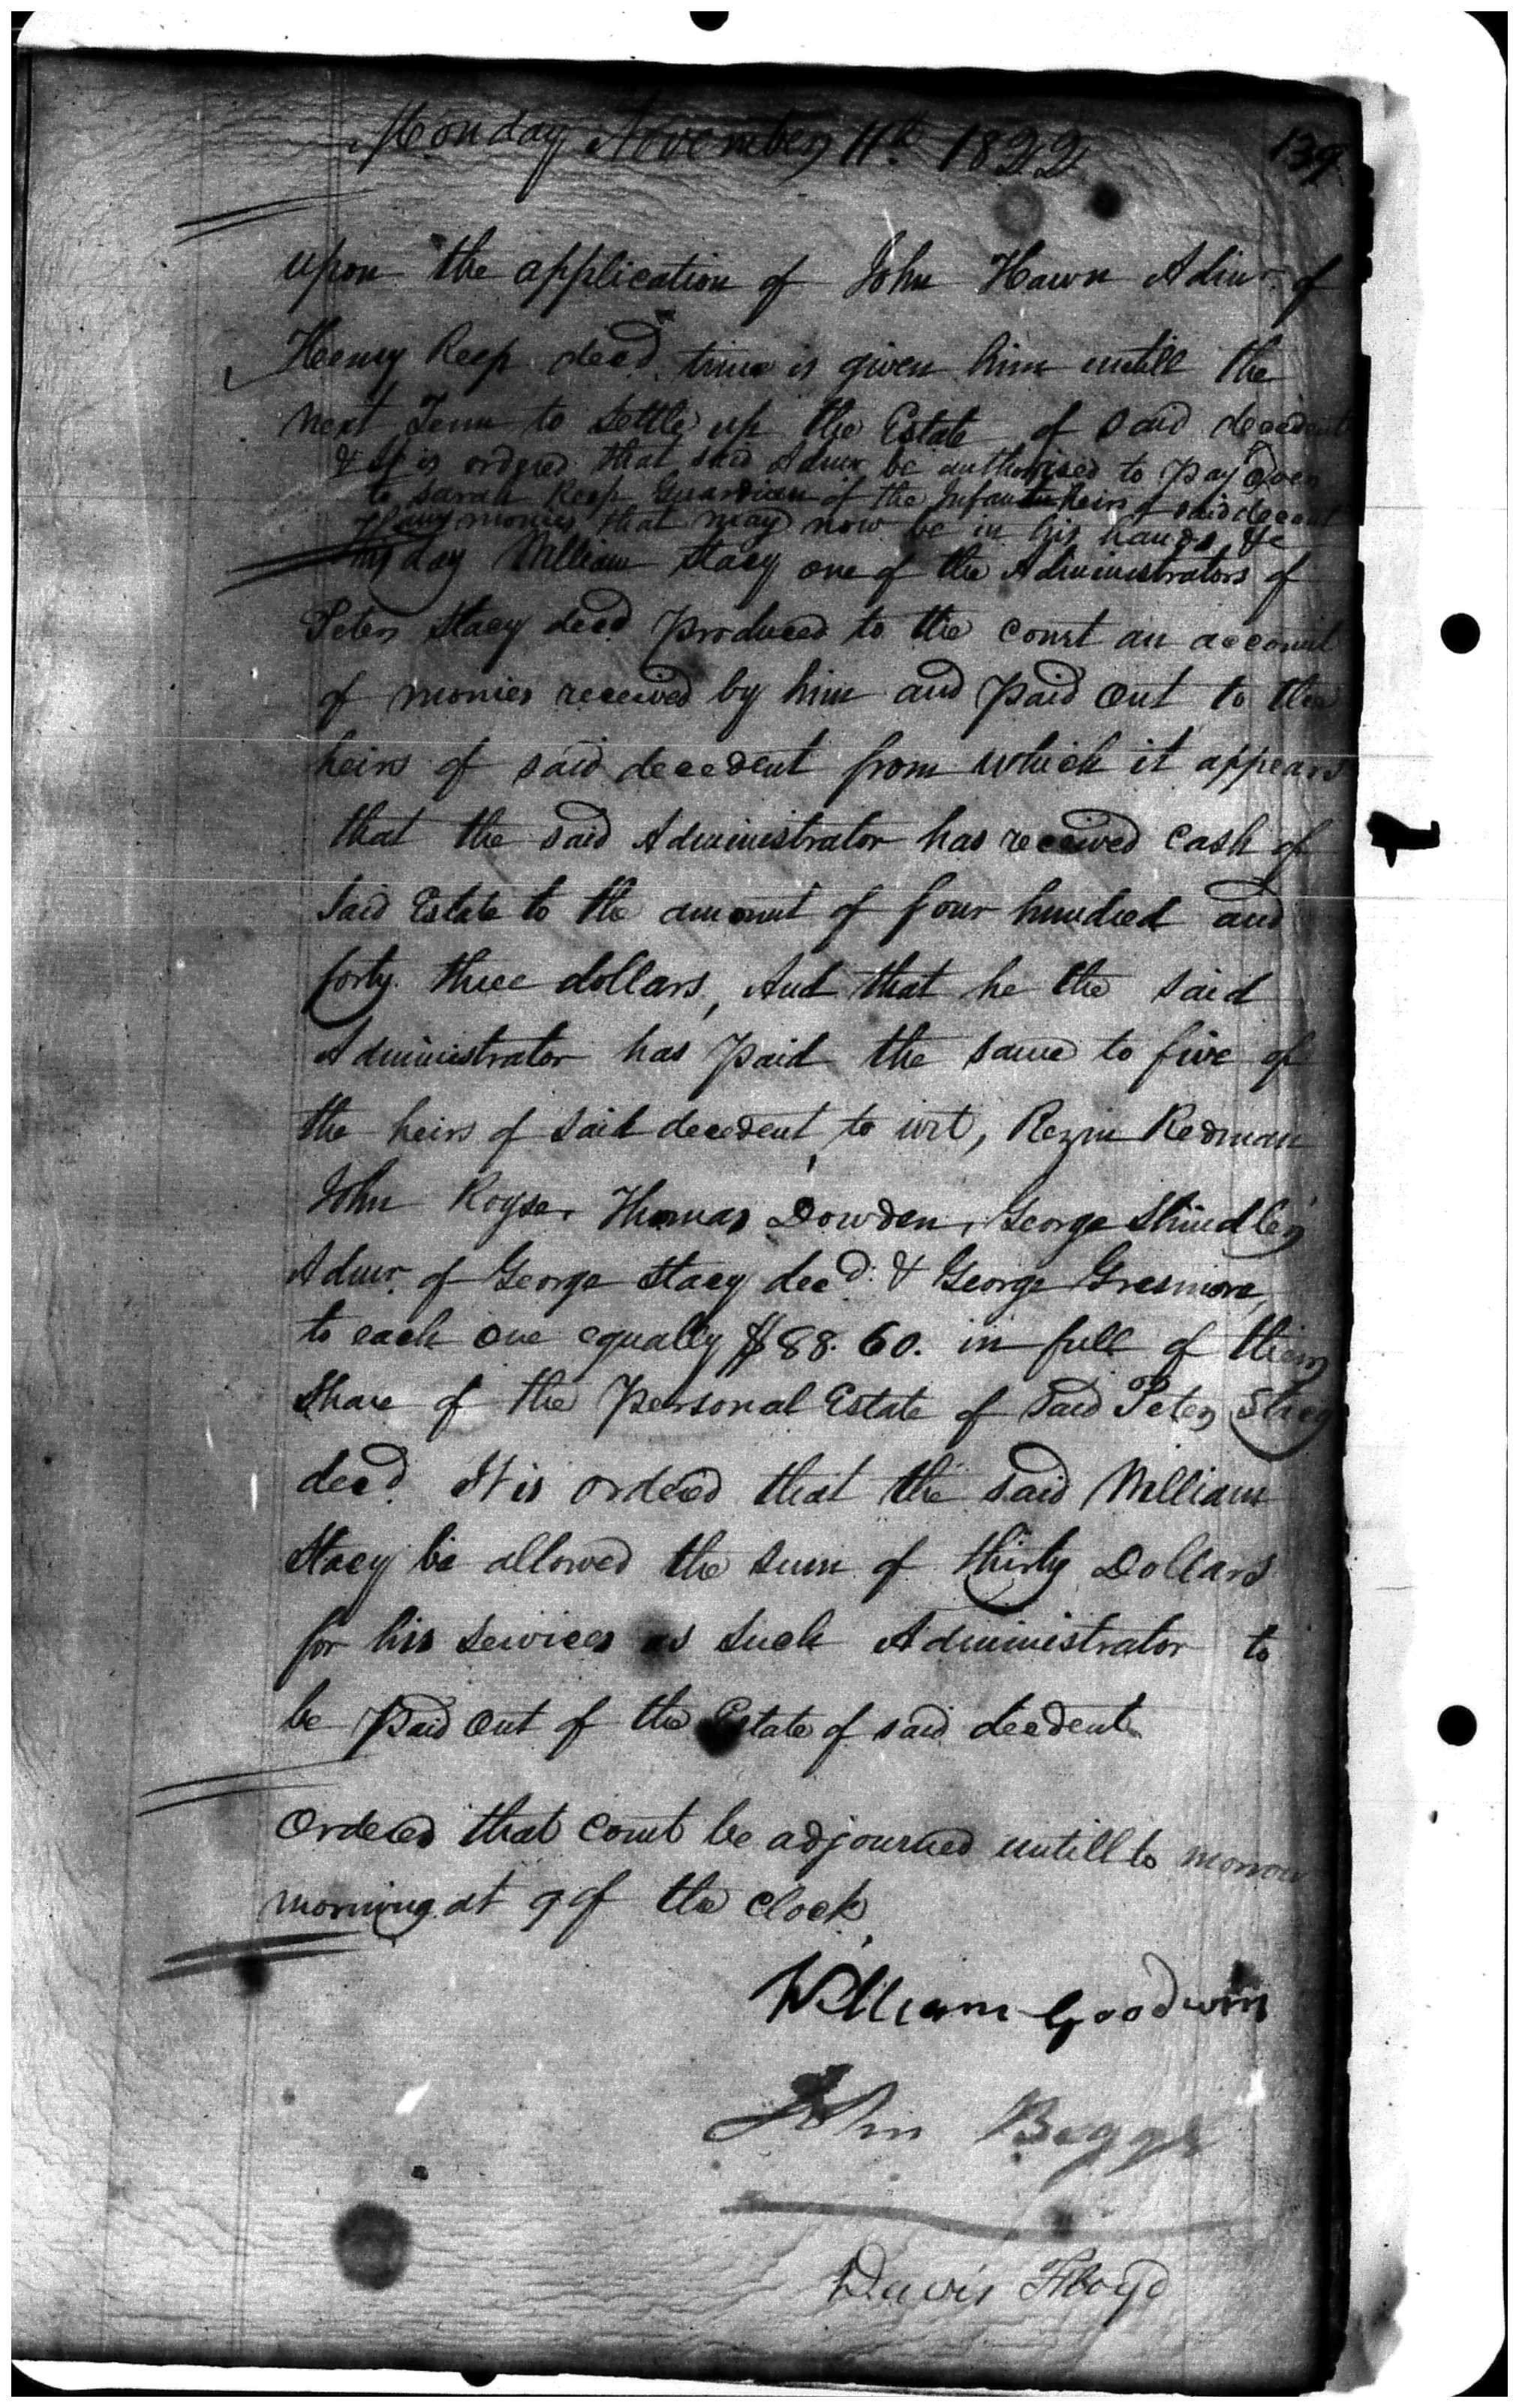 Monday November 11th 1822
139
upon the application of John Hawn Admr. of
Henry Reep decd. time is given him untill the
next Term to settle up the Estate of said decedent
& It is ordered that said Admr. be authorised to pay over
to Sarah Reep Guardian of the Infant heirs of said decedent
any monies that may now be in his hands &c
This day William Stacy one of the Administrators of
Peter Stacy decd. produced to the court an account
of monies received by him and paid out to the
heirs of said decedent from which it appears
that the said Administrator has received cash of
said Estate to the amount of four hundred and
forty three dollars, And that he the said
Administrator has paid the same to five of
the heirs of said decedent, to wit, Rezin Redman
John Royse, Thomas Dowden, George Shindler
Admr. of George Stacy decd. & George Gresmore,
to each one equally $88.60. in full of their
share of the personal Estate of said Peter Stacy
decd. It is ordered that the said William
Stacy be allowed the sum of thirty Dollars
for his services as such Administrator to
be paid out of the Estate of said decedent
Ordered that court be adjourned untill to morrow
morning at 9 of the clock
William Goodwin
John Beggs
Davis Floyd